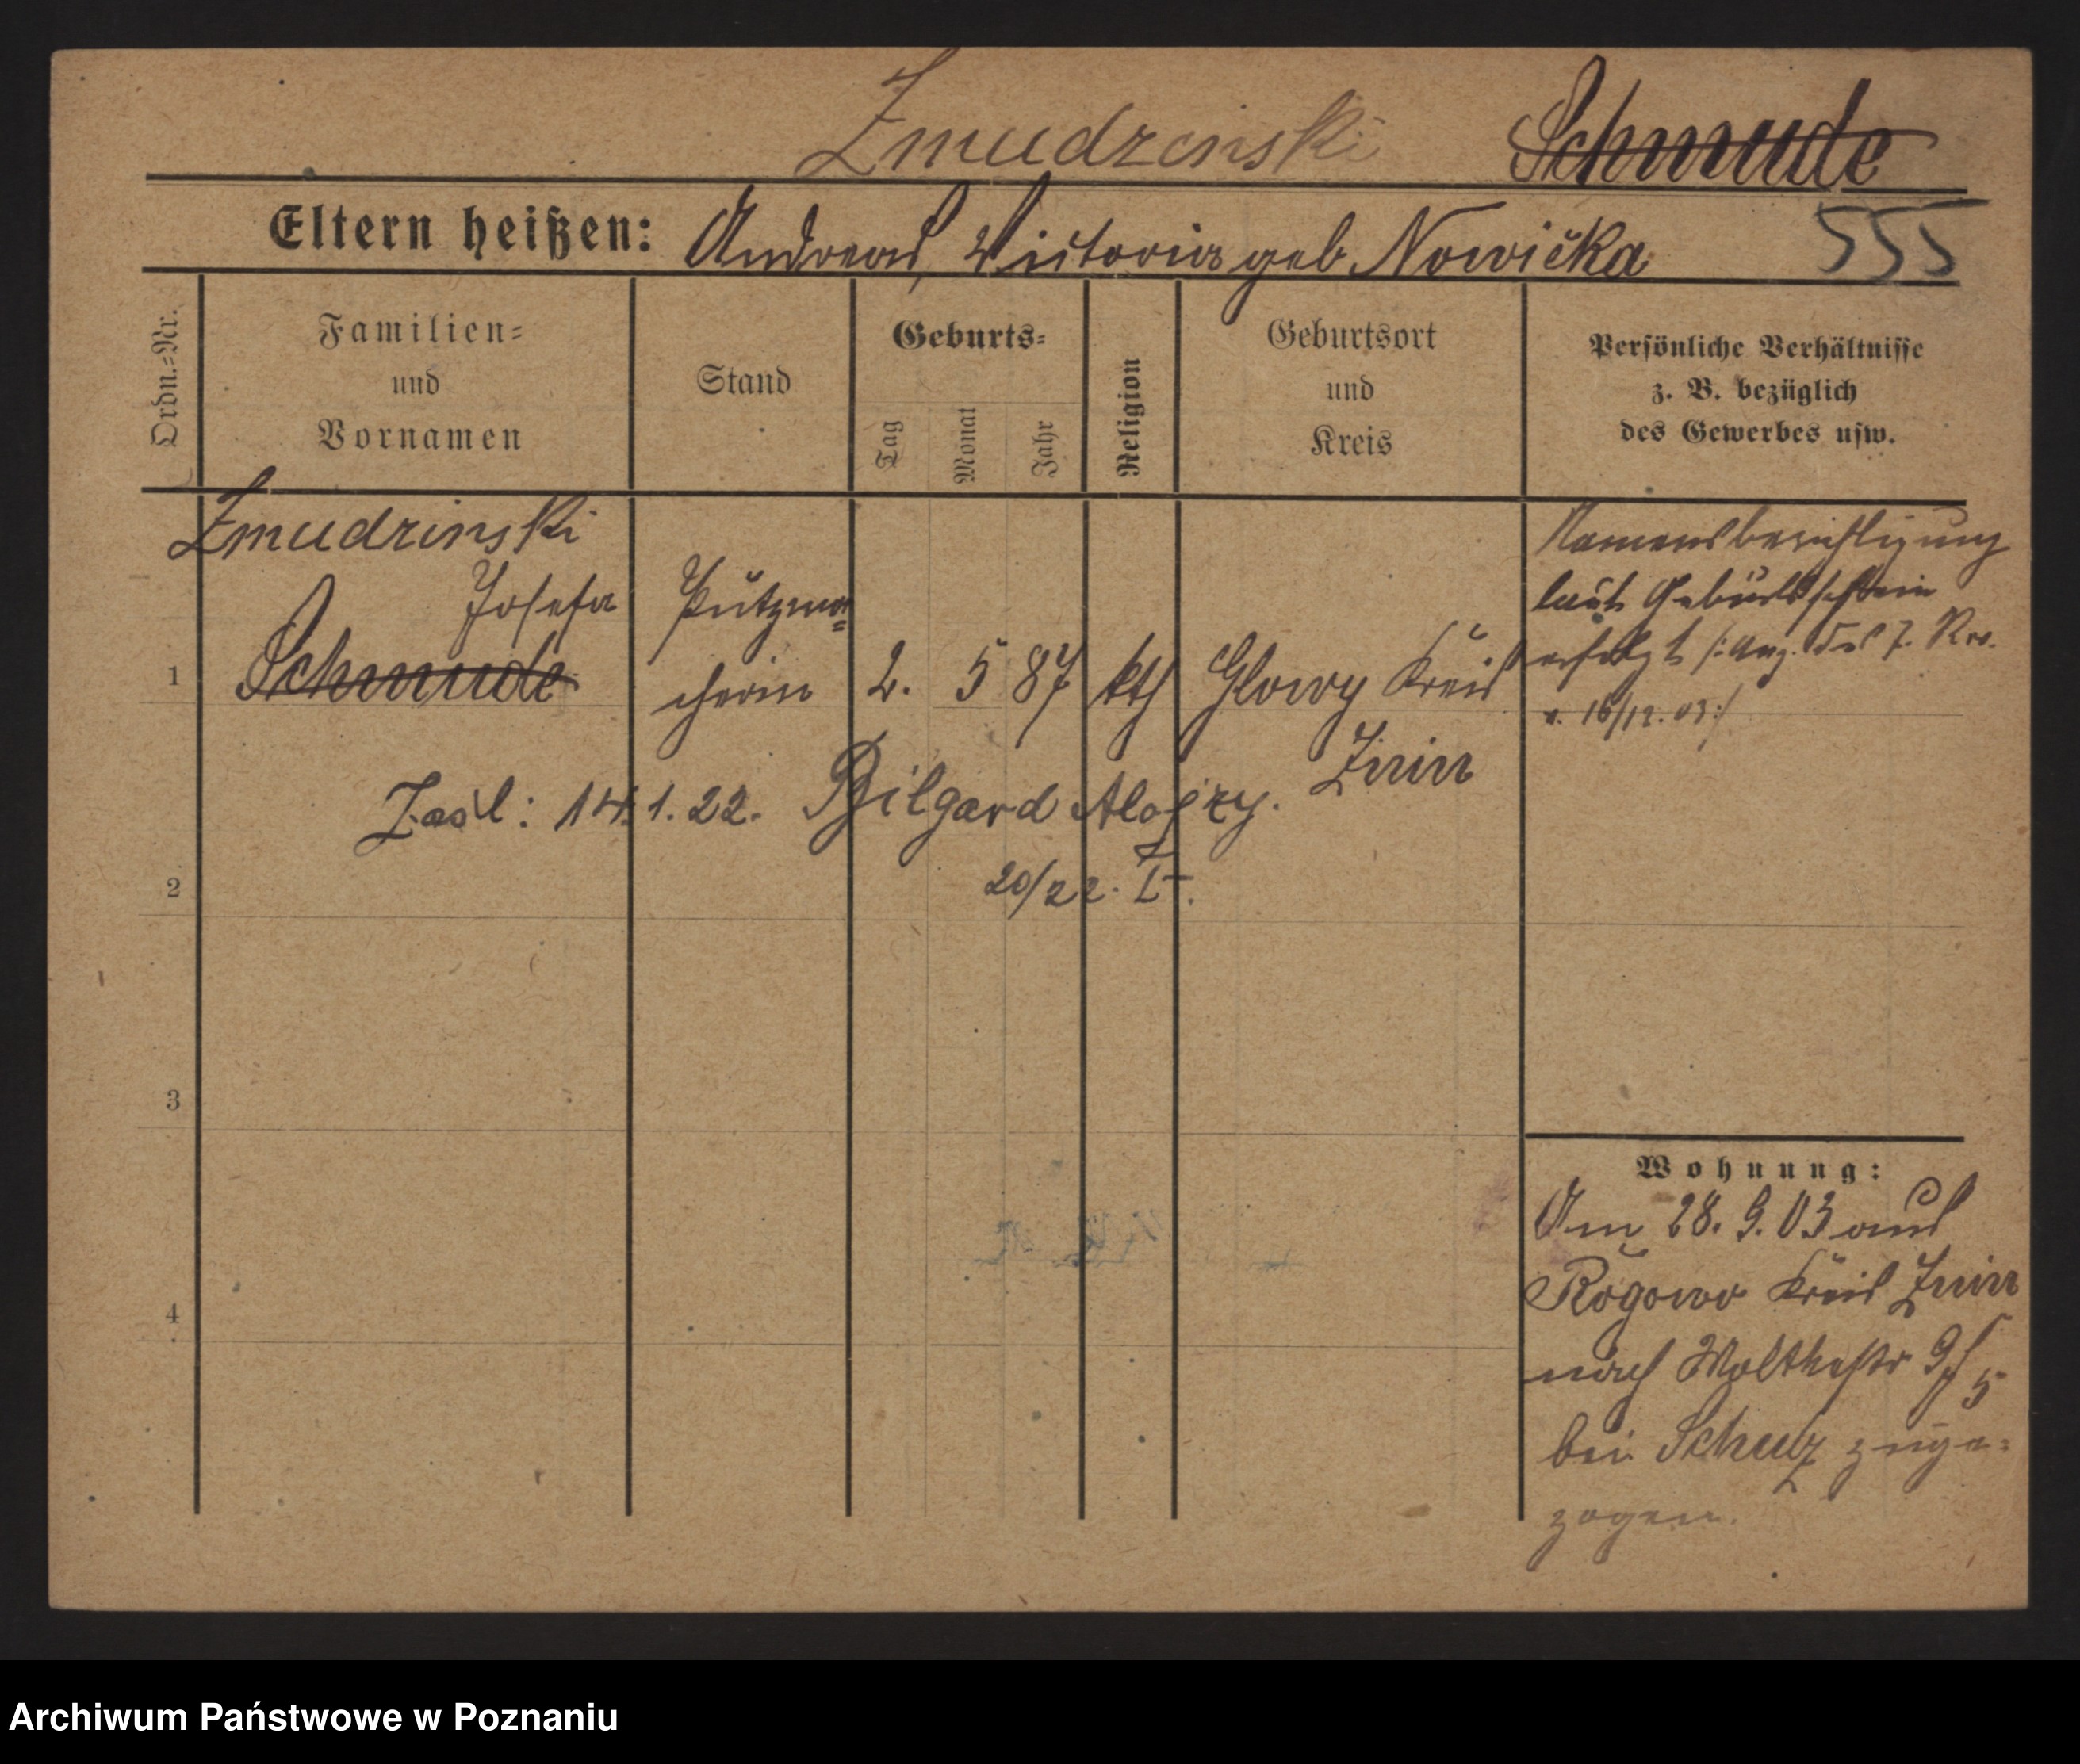 Zmudzinski Schmude
Eltern heißen: Andreas, Victoria geb. Nowicka 555
Ordn.=Nr. Familien= und Vornamen Stand Geburts= Tag Monat Jahr Religion Geburtsort und Kreis Persönliche Verhältnisse z. B. bezüglich des Gewerbes usw.
Zmudzinski
Josefa
1 Schmude Putzma=
cherin 2. 5 87 kth Glowy Kreis
Znin
Namensberichtigung
laut Geburtsschein
erfolgt /: Ang. des 7. Rev.
v. 16/12. 03 :/
Zaśl: 14.1.22. Bilgard Alojzy.
20/22. I.
2
3
4
Wohnung:
Am 28. 9. 03 aus
Rogowo Kreis Znin
nach Moltkestr 9
5
bei zuge=
zogen.
Archiwum Państwowe w Poznaniu